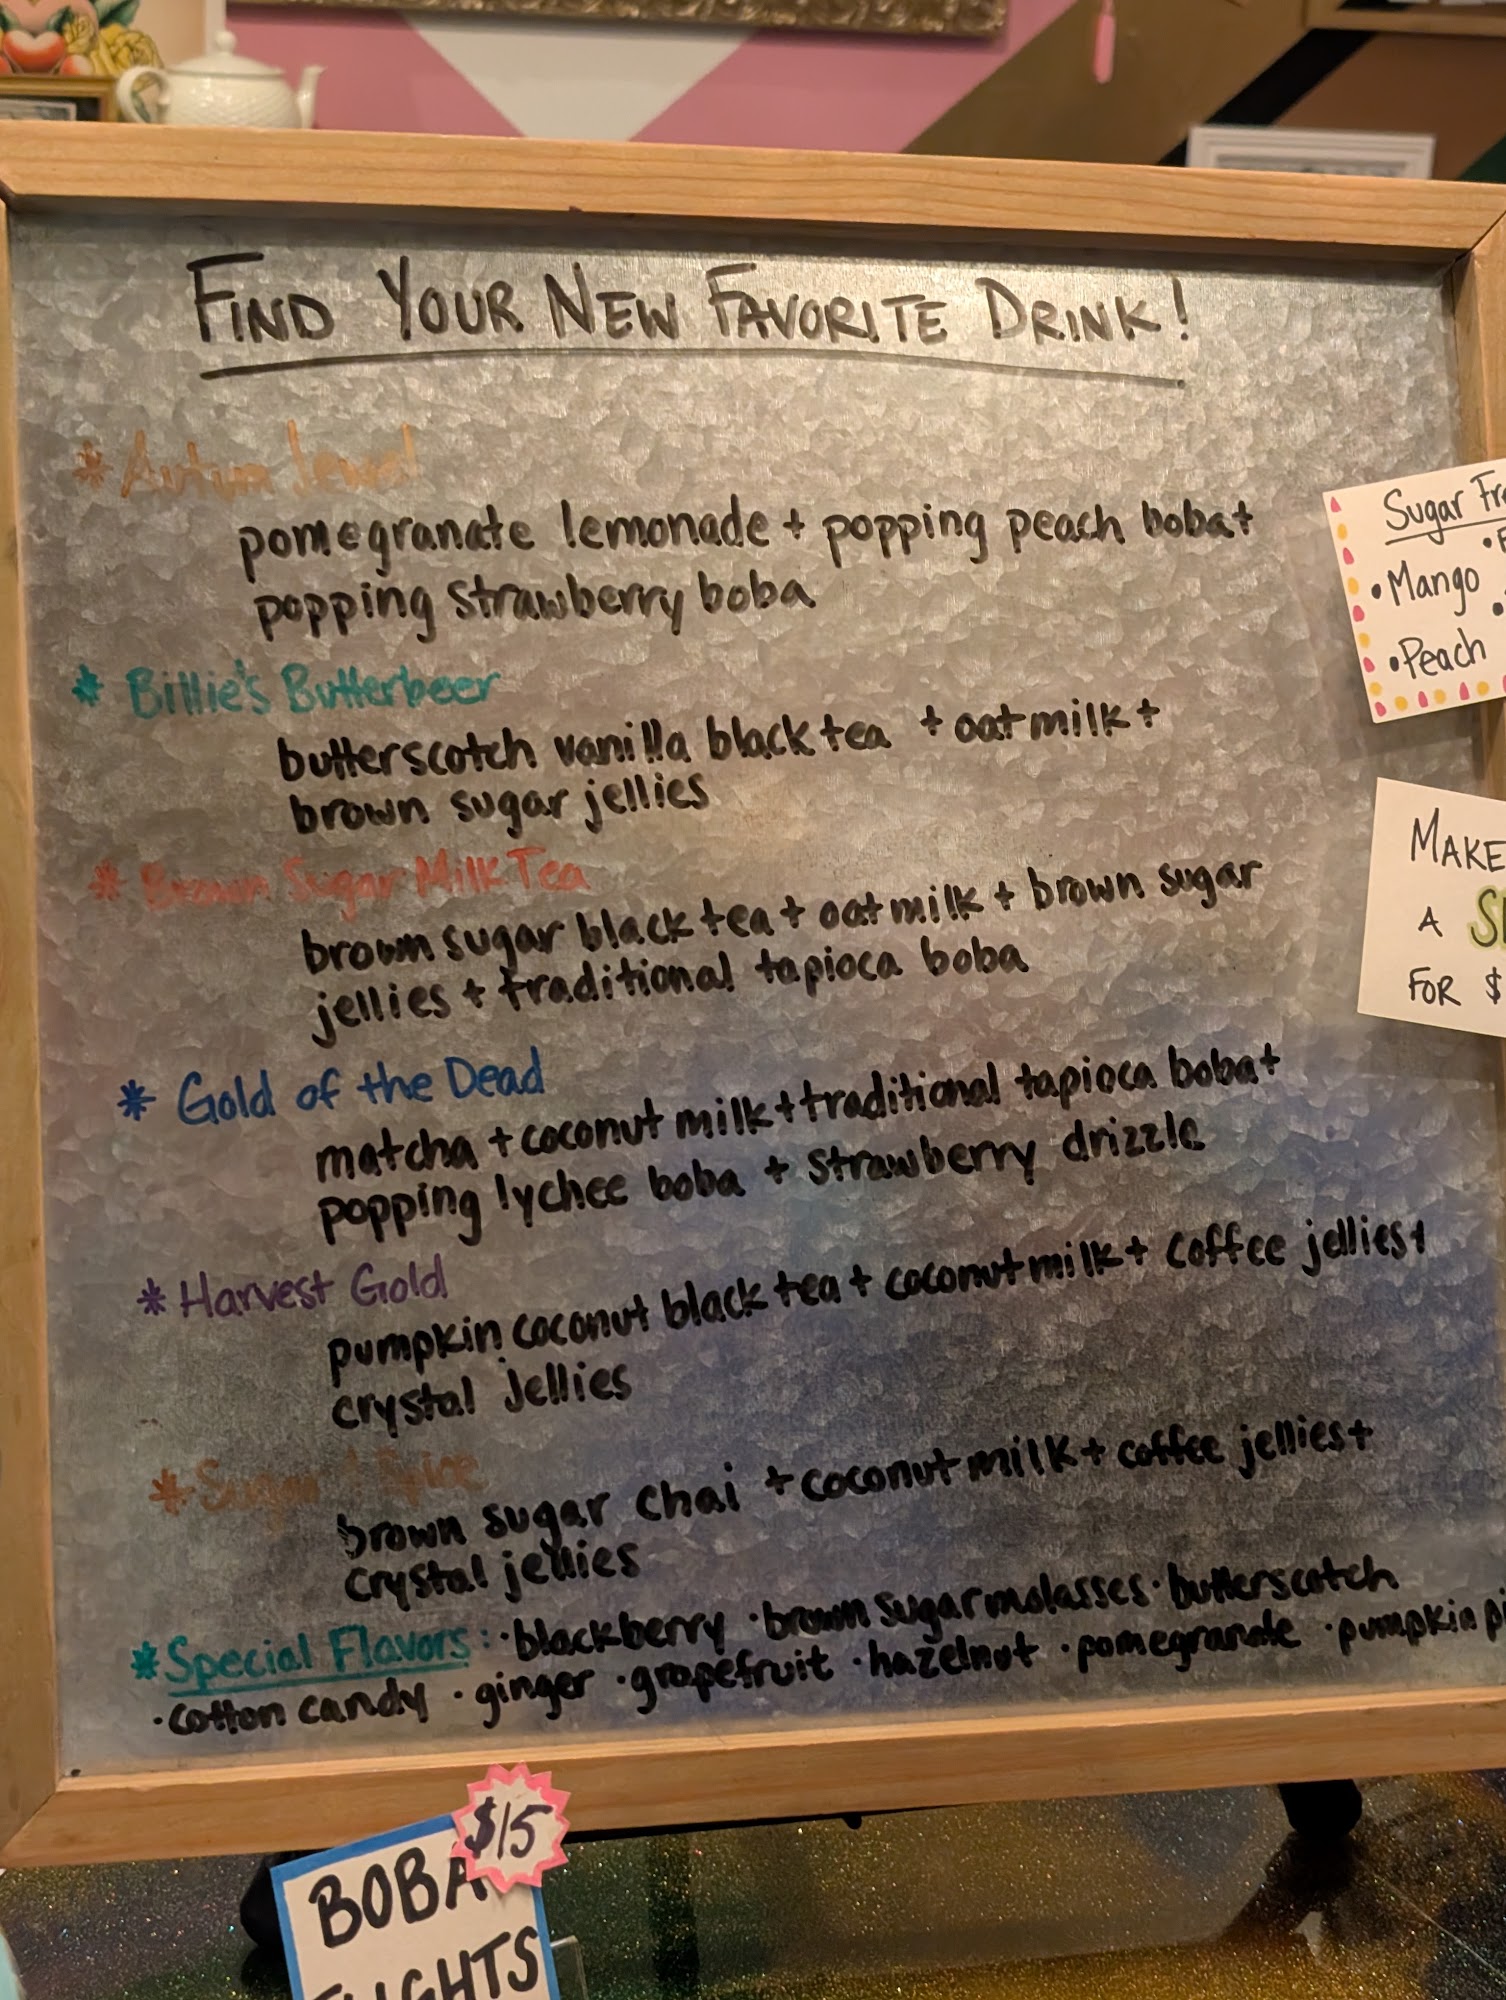 FIND YOUR NEW FAVORITE DRINK!
* Autum Jewel
pomegranate lemonade + popping peach boba +
popping strawberry boba
* Billie's Butterbeer
butterscotch vanilla black tea + oat milk +
brown sugar jellies
* Brown Sugar Milk Tea
brown sugar black tea + oat milk + brown sugar
jellies + traditional tapioca boba
* Gold of the Dead
matcha + coconut milk + traditional tapioca boba +
popping lychee boba + strawberry drizzle
* Harvest Gold
pumpkin coconut black tea + coconut milk + coffee jellies +
crystal jellies
* Sugar + Spice
brown sugar chai + coconut milk + coffee jellies +
crystal jellies
* Special Flavors: · blackberry · brown sugar molasses · butterscotch
· cotton candy · ginger · grapefruit · hazelnut · pomegranate · pumpkin
Sugar
• Mango
• Peach
MAKE
A
FOR $
$15
BOBA